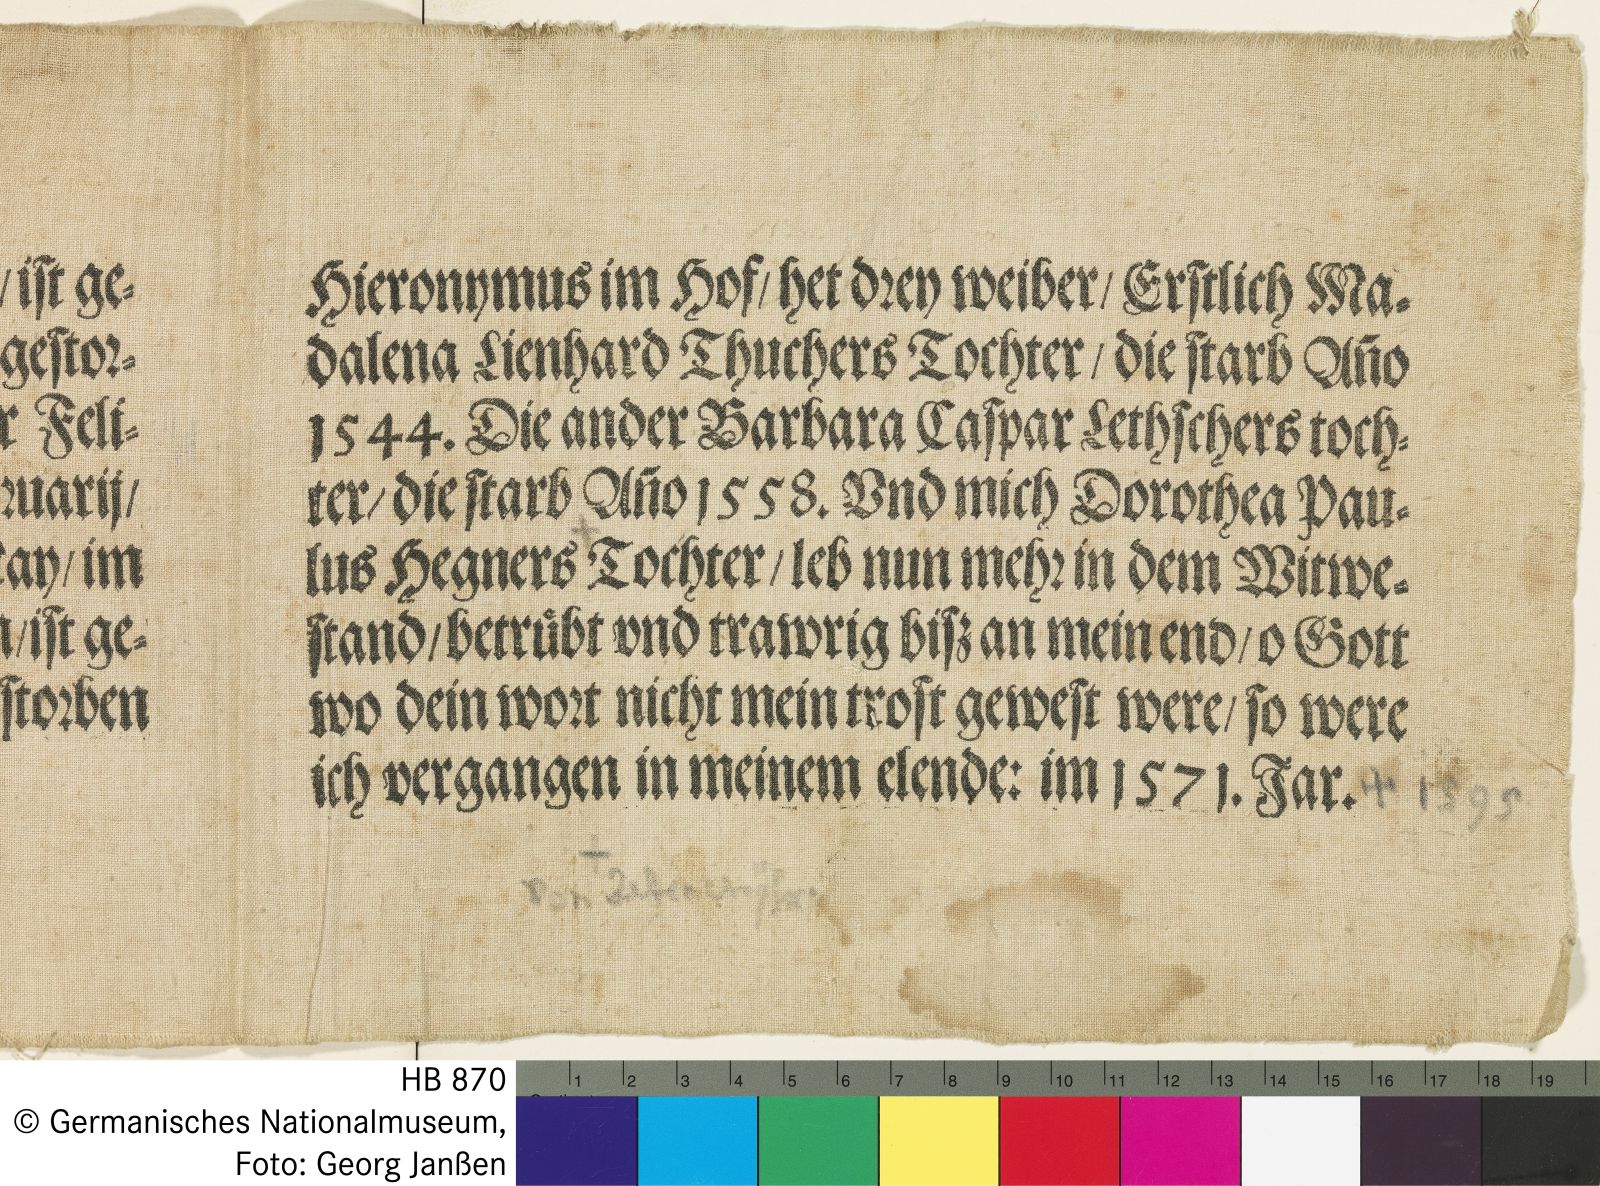 / ist ge⸗
gestor⸗
r Feli⸗
ruarij/
ay/ im
n/ ist ge⸗
storben
Hieronymus im Hof/ het drey weiber/ Erstlich Ma⸗
dalena Lienhard Thuchers Tochter/ die starb Año
1544. Die ander Barbara Caspar Lethschers toch⸗
ter/ die starb Año 1558. Vnd mich Dorothea Pau⸗
lus Hegners Tochter/ leb nun mehr in dem Witwe⸗
stand/ betrübt vnd trawrig bisz an mein end/ o Gott
wo dein wort nicht mein trost gewest were/ so were
ich vergangen in meinem elende: im 1571. Jar. 1595
von
HB 870
© Germanisches Nationalmuseum,
Foto: Georg Janßen
1 2 3 4 5 6 7 8 9 10 11 12 13 14 15 16 17 18 19